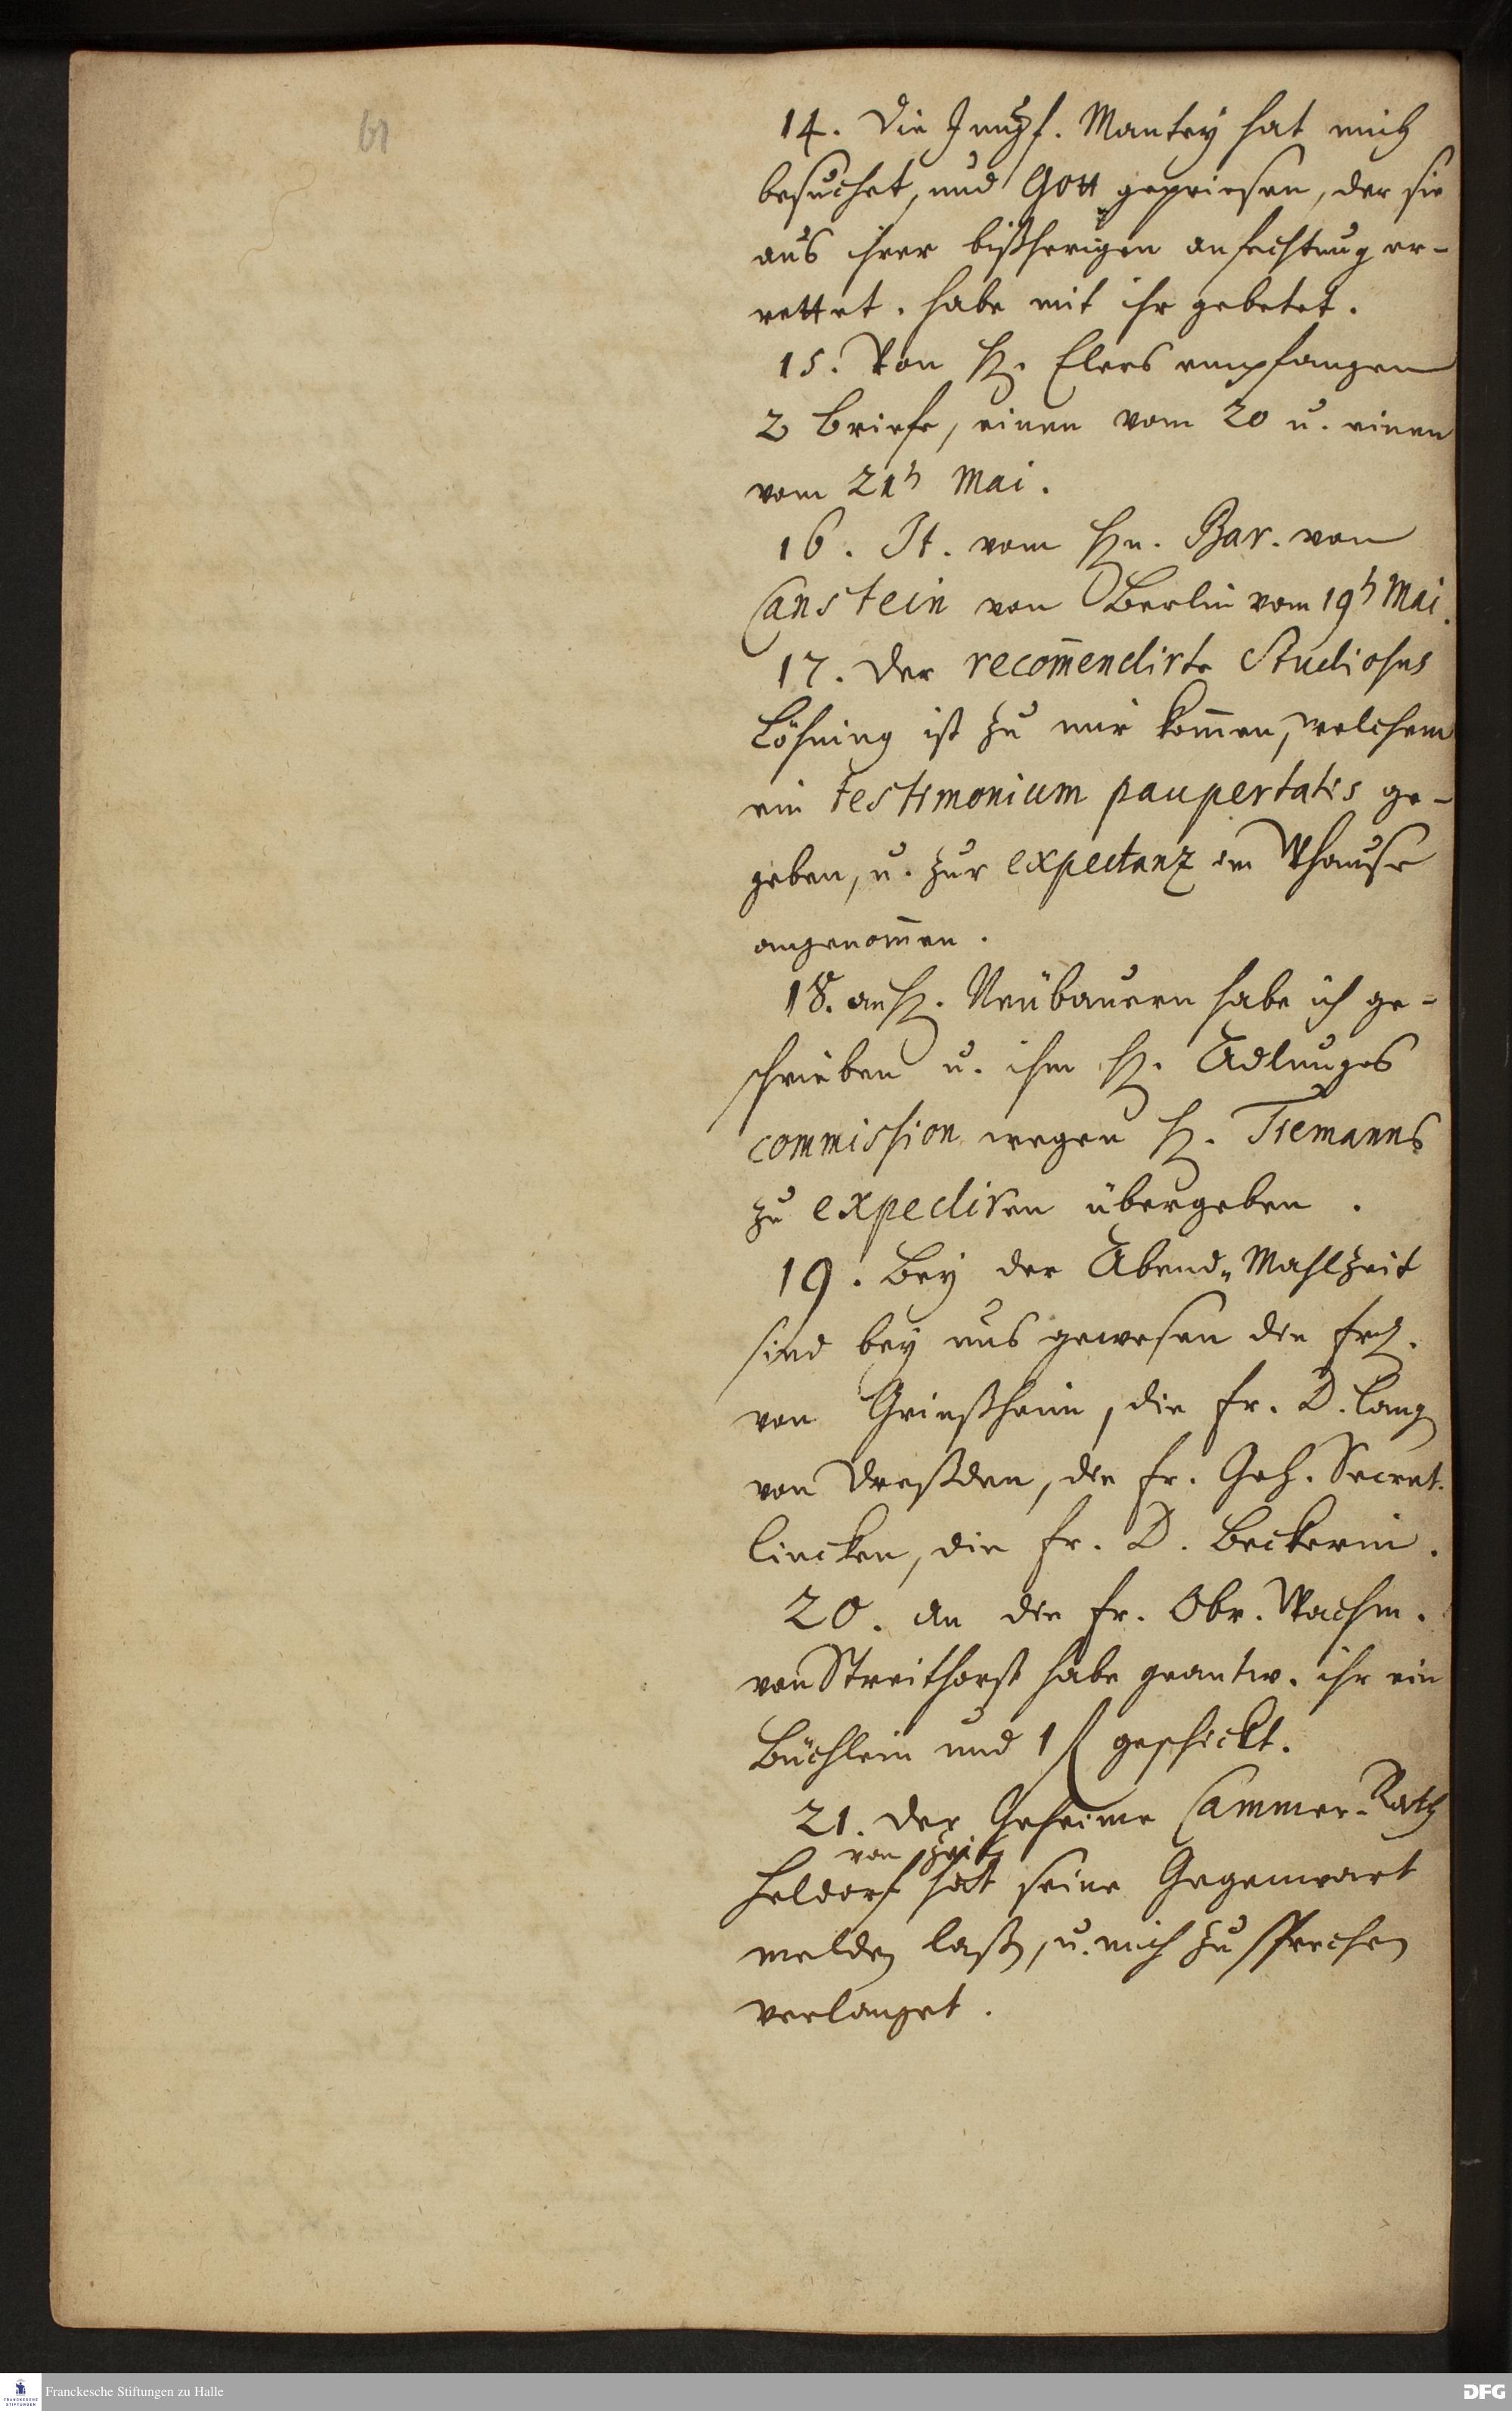 61
14. Die Jungf. Mantey hat mich
besuchet, und Gott gepriesen, der sie
aus ihrer bißherigen anfechtung er-
rettet. habe mit ihr gebetet.
15. Von H. Elers empfangen
2 briefe, einen vom 20 u. einen
vom 21t Mai.
16. It. vom Hn. Bar. von
Canstein von Berlin vom 19t Mai.
17. Der recom̄endirte Studiosus
Löhning ist zu mir kom̄en, welchem
ein testimonium paupertatis ge-
geben, u. zur expectanz im Whause
angenom̄en.
18. an H. Neubauern habe ich ge-
schrieben u. ihm H. Adlunges
commission wegen H. Tiemanns
zu expediren übergeben.
19. Bey der Abend-Mahlzeit
sind bey uns gewesen die Frl.
von Grießheim, die Fr. D. Lang
von Dreßden, die Fr. Geh. Secret.
Lincken, die Fr. D. Beckerin.
20. An die Fr. Obr. Wachm.
von Streithorst habe geantw. ihr ein
Büchlein und 1 geschickt.
21. Der Geheime Cammer-Rath
von Zeitz
Heldorf hat seine Gegenwart
melden laßen, u. mich zu sprechen
verlanget.
Franckesche Stiftungen zu Halle
FRANCKESCHE STIFTUNGEN
DFG